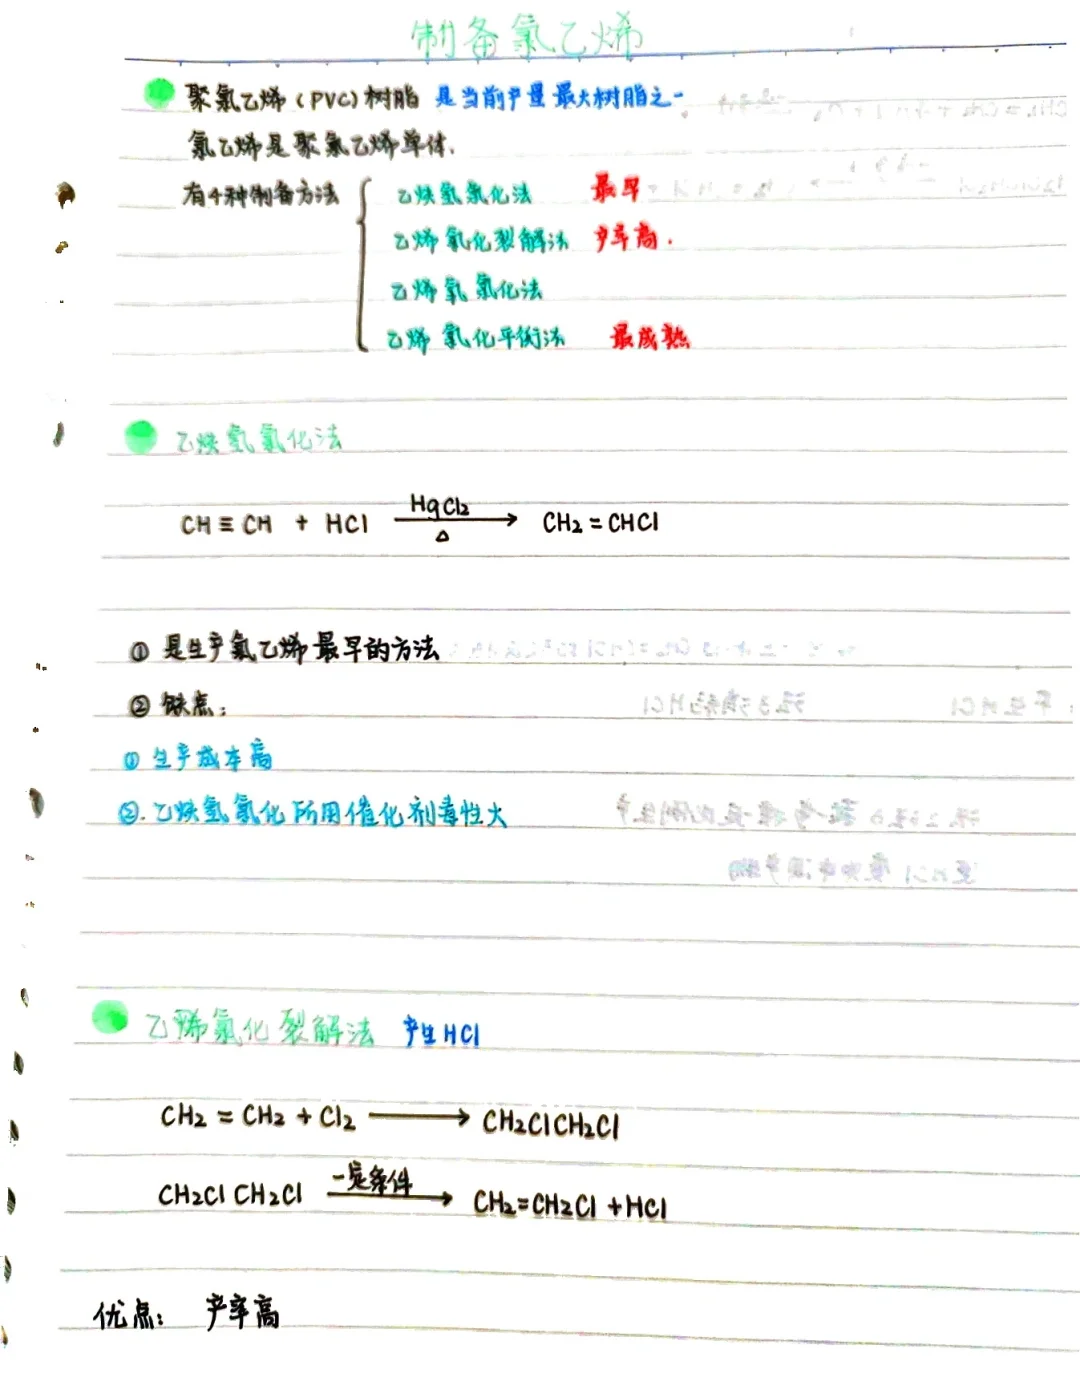 制备氯乙烯
聚氯乙烯（PVC）树脂 是当前产量最大树脂之一
氯乙烯是聚氯乙烯单体.
有4种制备方法
乙炔氢氯化法 最早
乙烯氯化裂解法 产率高.
乙烯氧氯化法
乙烯氯化平衡法 最成熟
乙炔氢氯化法
CH≡CH + HCl —HgCl₂/△→ CH₂=CHCl
① 是生产氯乙烯最早的方法
② 缺点：
① 生产成本高
②. 乙炔氢氯化所用催化剂毒性大
乙烯氯化裂解法 产生HCl
CH₂=CH₂ + Cl₂ ⟶ CH₂ClCH₂Cl
CH₂ClCH₂Cl —一定条件→ CH₂=CH₂Cl + HCl
优点： 产率高